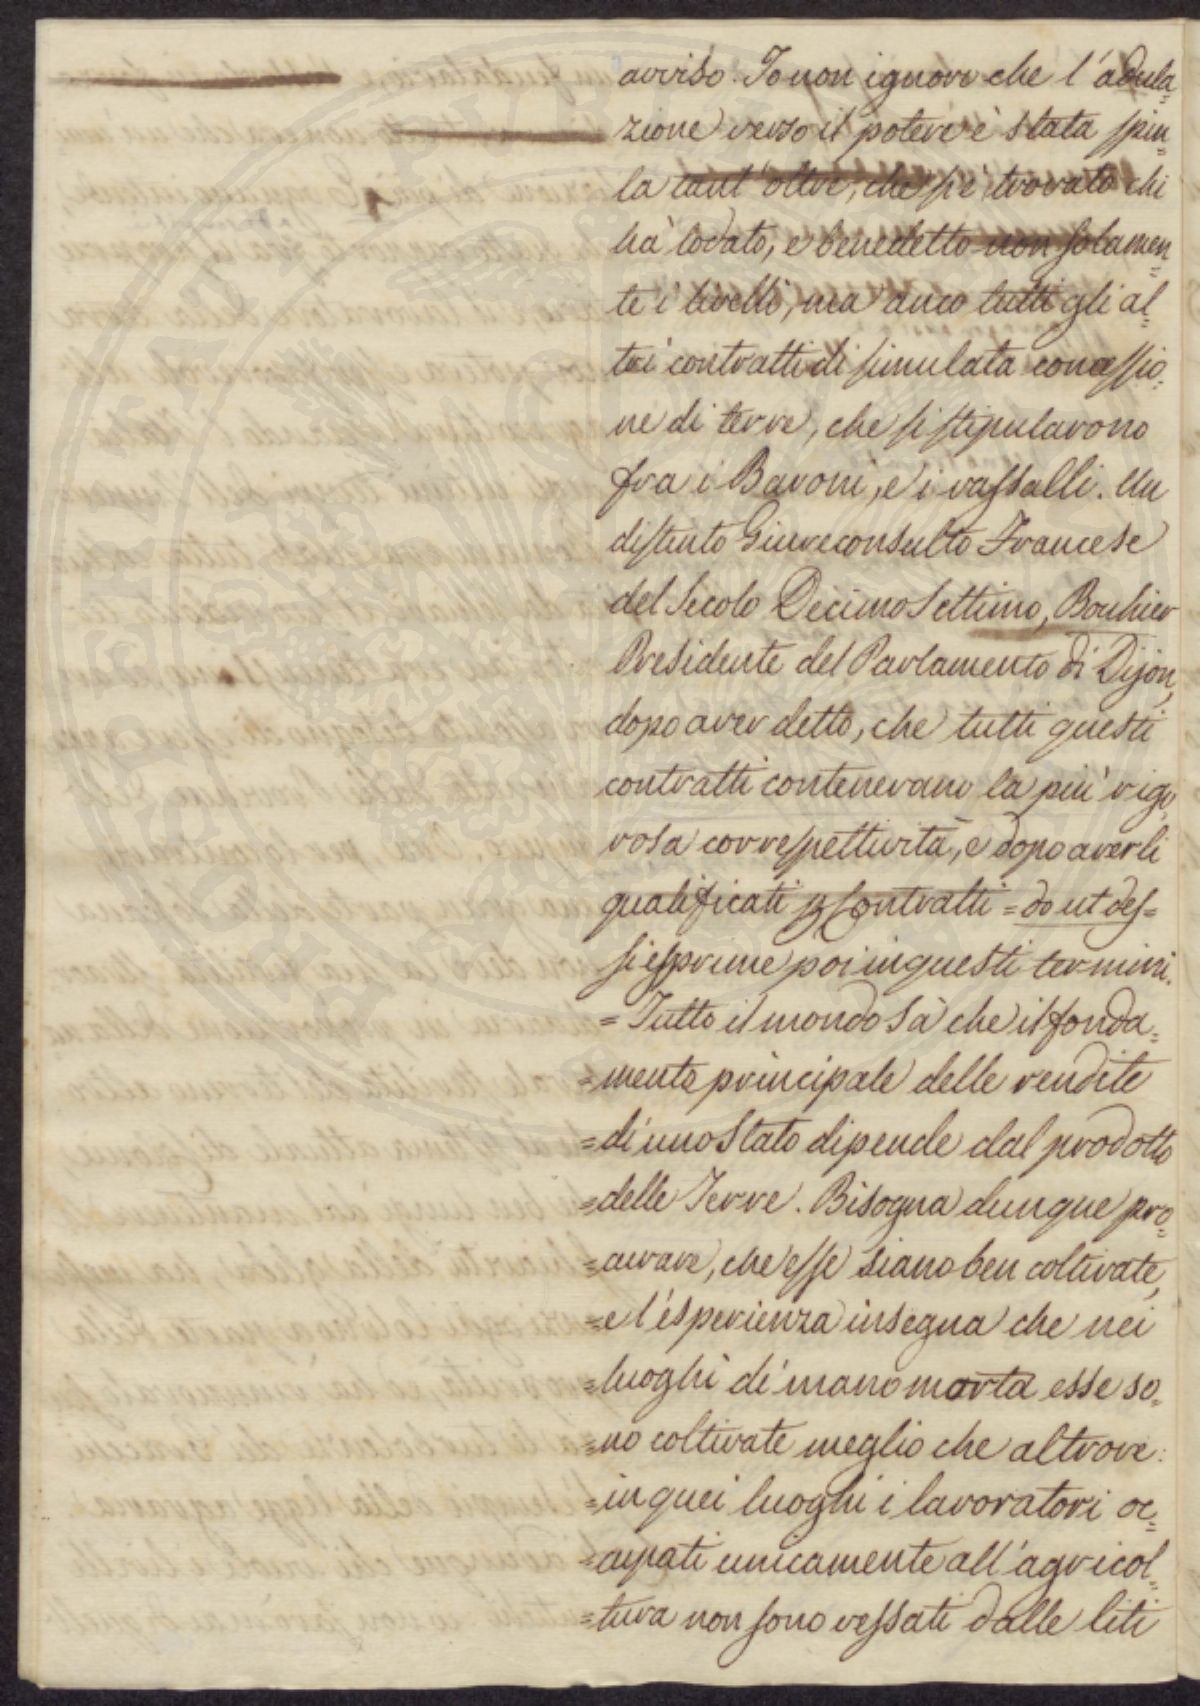 avviso. Io non ignoro che l'adula=
zione verso il potere è stata spin=
ta tant'oltre, che s'è trovato chi
hà lodato, e benedetto non solamen=
te i livelli, ma anco tutti gli al=
tri contratti di simulata concessio=
ne di terre, che si stipularono
fra i Baroni, e i vassalli. Un
distinto Giureconsulto Francese
del Secolo Decimo Settimo, Bouhier
Presidente del Parlamento di Dijon,
dopo aver detto, che tutti questi
contratti contenevano la più rigo=
rosa correspettività, e dopo averli
qualificati p Contratti = do ut des=
si esprime poi in questi termini.
= Tutto il mondo sà che il fonda=
= mento principale delle rendite
= di uno Stato dipende dal prodotto
= delle Terre. Bisogna dunque pro=
= curare, che esse siano ben coltivate,
= e l'esperienza insegna che nei
= luoghi di manomorta esse so=
= no coltivate meglio che altrove:
= in quei luoghi i lavoratori oc=
= cupati unicamente all'agricol=
= tura non sono vessati dalle liti